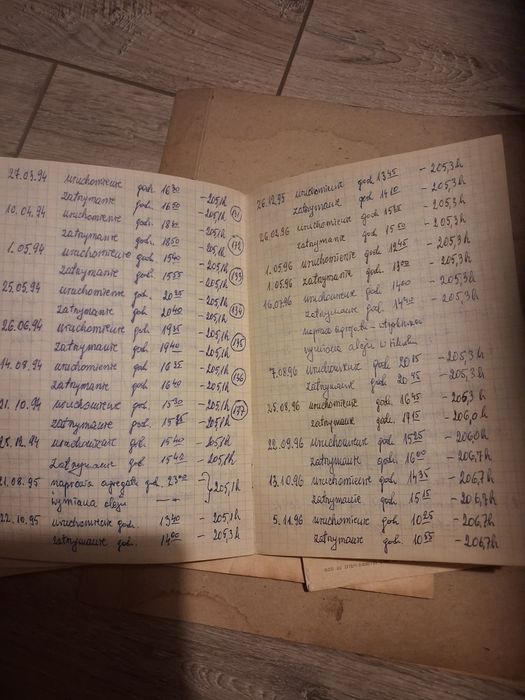 27.03.94 uruchomienie god. 16 30 - 205,1h
zatrzymanie god. 16 50 - 205,1h (131)
10.04.94 uruchomienie god. 18 40 - 205,1h
zatrzymanie god. 18 50 - 205,1h (132)
1.05.94 uruchomienie god. 15 40 - 205,1h
zatrzymanie god. 15 55 - 205,1h (133)
25.05.94 uruchomienie god. 20 25 - 205,1h
zatrzymanie god. 20 40 - 205,1h (134)
26.06.94 uruchomienie god. 19 25 - 205,1h
zatrzymanie god. 19 40 - 205,1h (135)
14.08.94 uruchomienie god. 16 25 - 205,1h
zatrzymanie god. 16 40 - 205,1h (136)
21.10.94 uruchomienie god. 15 30 - 205,1h
zatrzymanie god. 15 45 - 205,1h (137)
25.12.94 uruchomienie god. 15 40 - 205,1h
zatrzymanie god. 15 45 - 205,1h
21.08.95 naprawa agregatu god. 23 00 } 205,1h
wymiana oleju —"—
22.10.95 uruchomienie god. 13 40 - 205,1h
zatrzymanie god. 14 00 - 205,3h
26.12.95 uruchomienie god. 13 45 - 205,3h
zatrzymanie god. 14 10 - 205,3h
26.02.96 uruchomienie god. 15 35 - 205,3h
zatrzymanie god. 15 50 - 205,3h
1.05.96 uruchomienie god. 12 45 - 205,3h
1.05.96 zatrzymanie god. 13 00 - 205,3h
16.07.96 uruchomienie god. 14 00 - 205,3h
zatrzymanie god. 14 40 - 205,3h
naprawa agregatu -
wymiana oleju w
7.08.96 uruchomienie god. 20 15 - 205,3h
zatrzymanie god. 20 45 - 205,3h
25.08.96 uruchomienie god. 16 45 - 205,3h
zatrzymanie god. 17 15 - 206,0h
22.09.96 uruchomienie god. 15 25 - 206,0h
zatrzymanie god. 16 00 - 206,7h
13.10.96 uruchomienie god. 14 35 - 206,7h
zatrzymanie god. 15 15 - 206,7h
5.11.96 uruchomienie god. 10 25 - 206,7h
zatrzymanie god. 10 55 - 206,7h